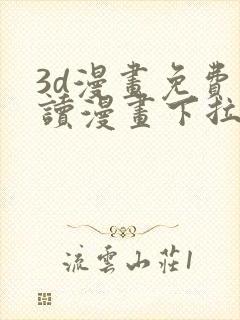 3d漫畫免費
讀漫畫下拉
流雲山莊1